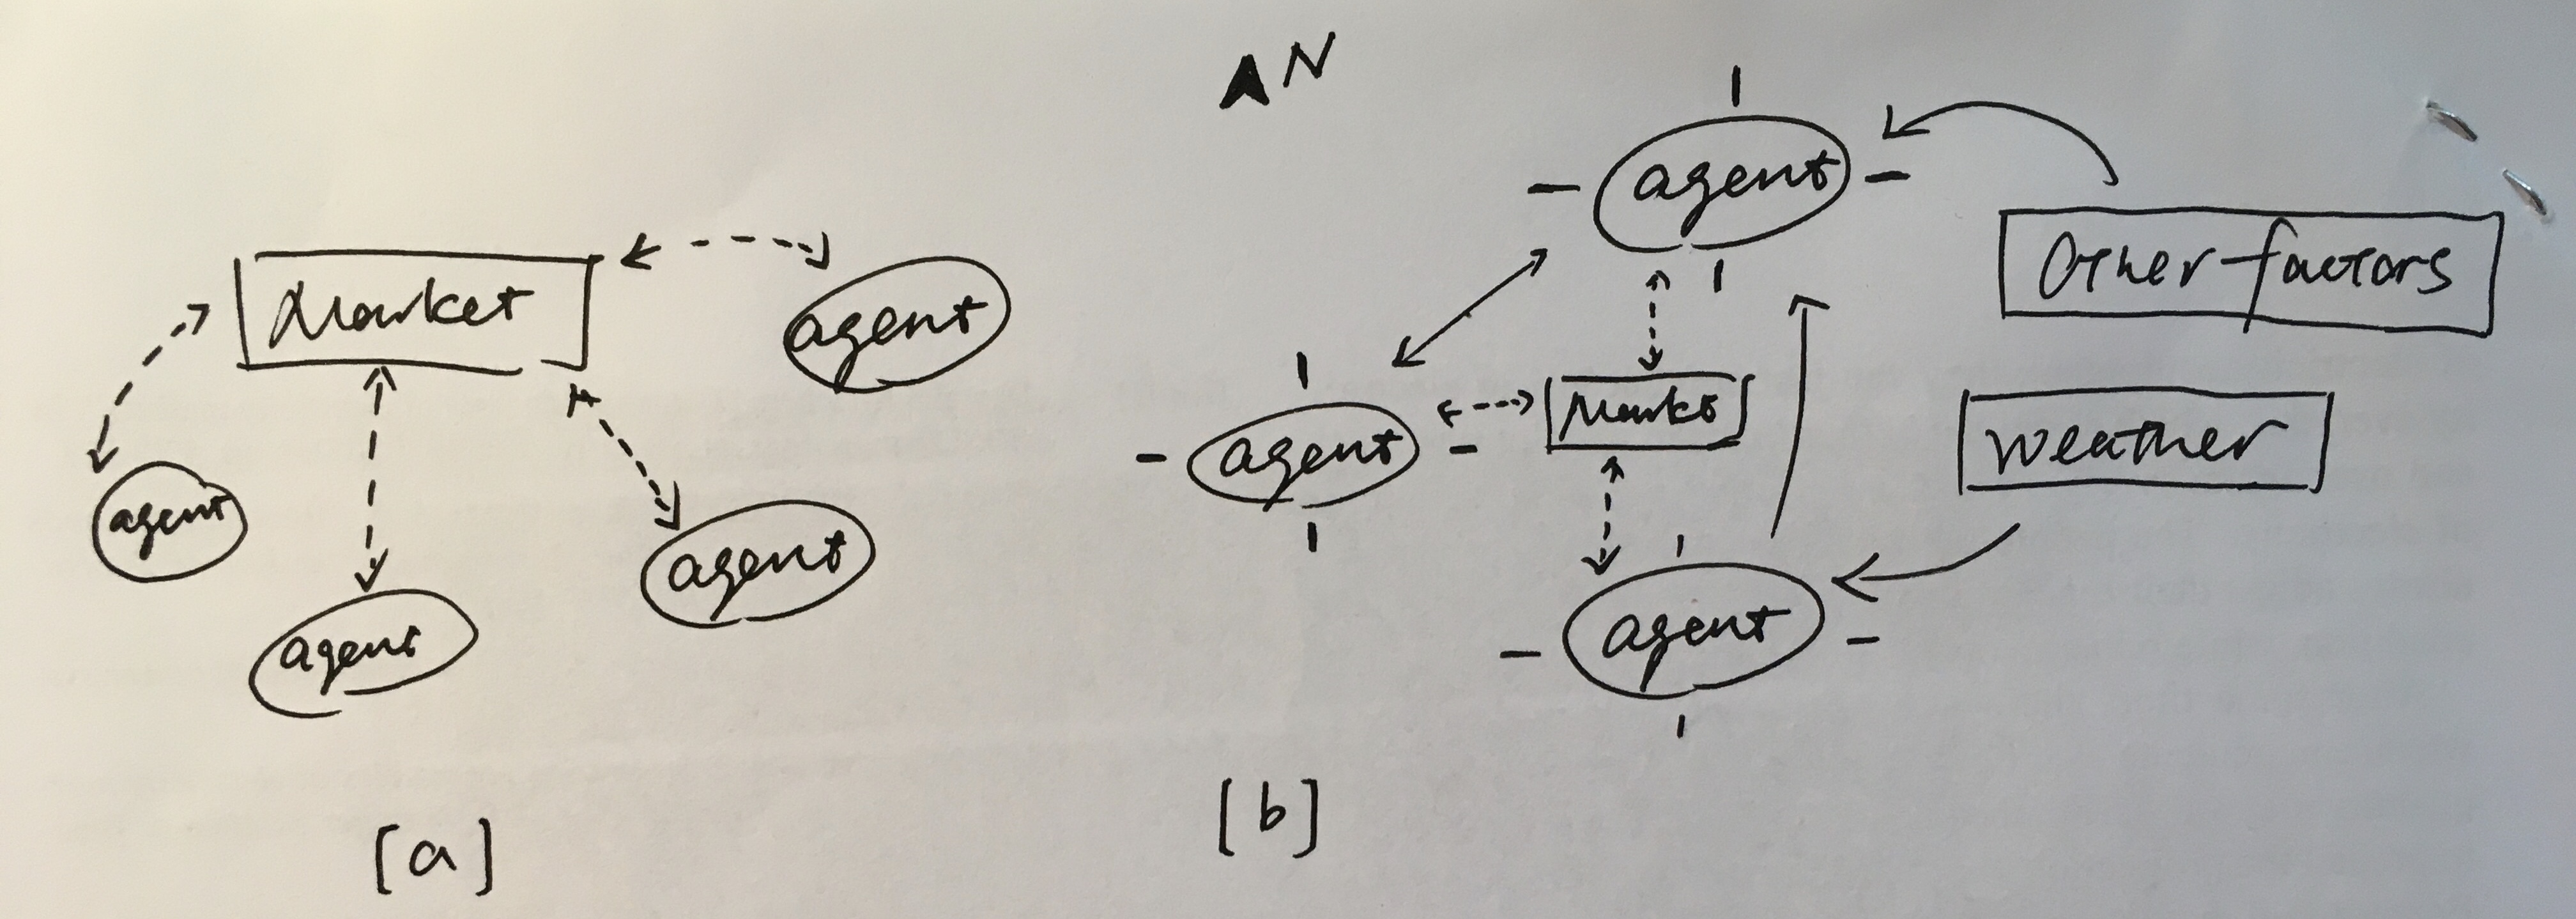 Market
agent
agent
agent
agent
[a]
N
agent
Other factors
agent
Market
weather
agent
[b]